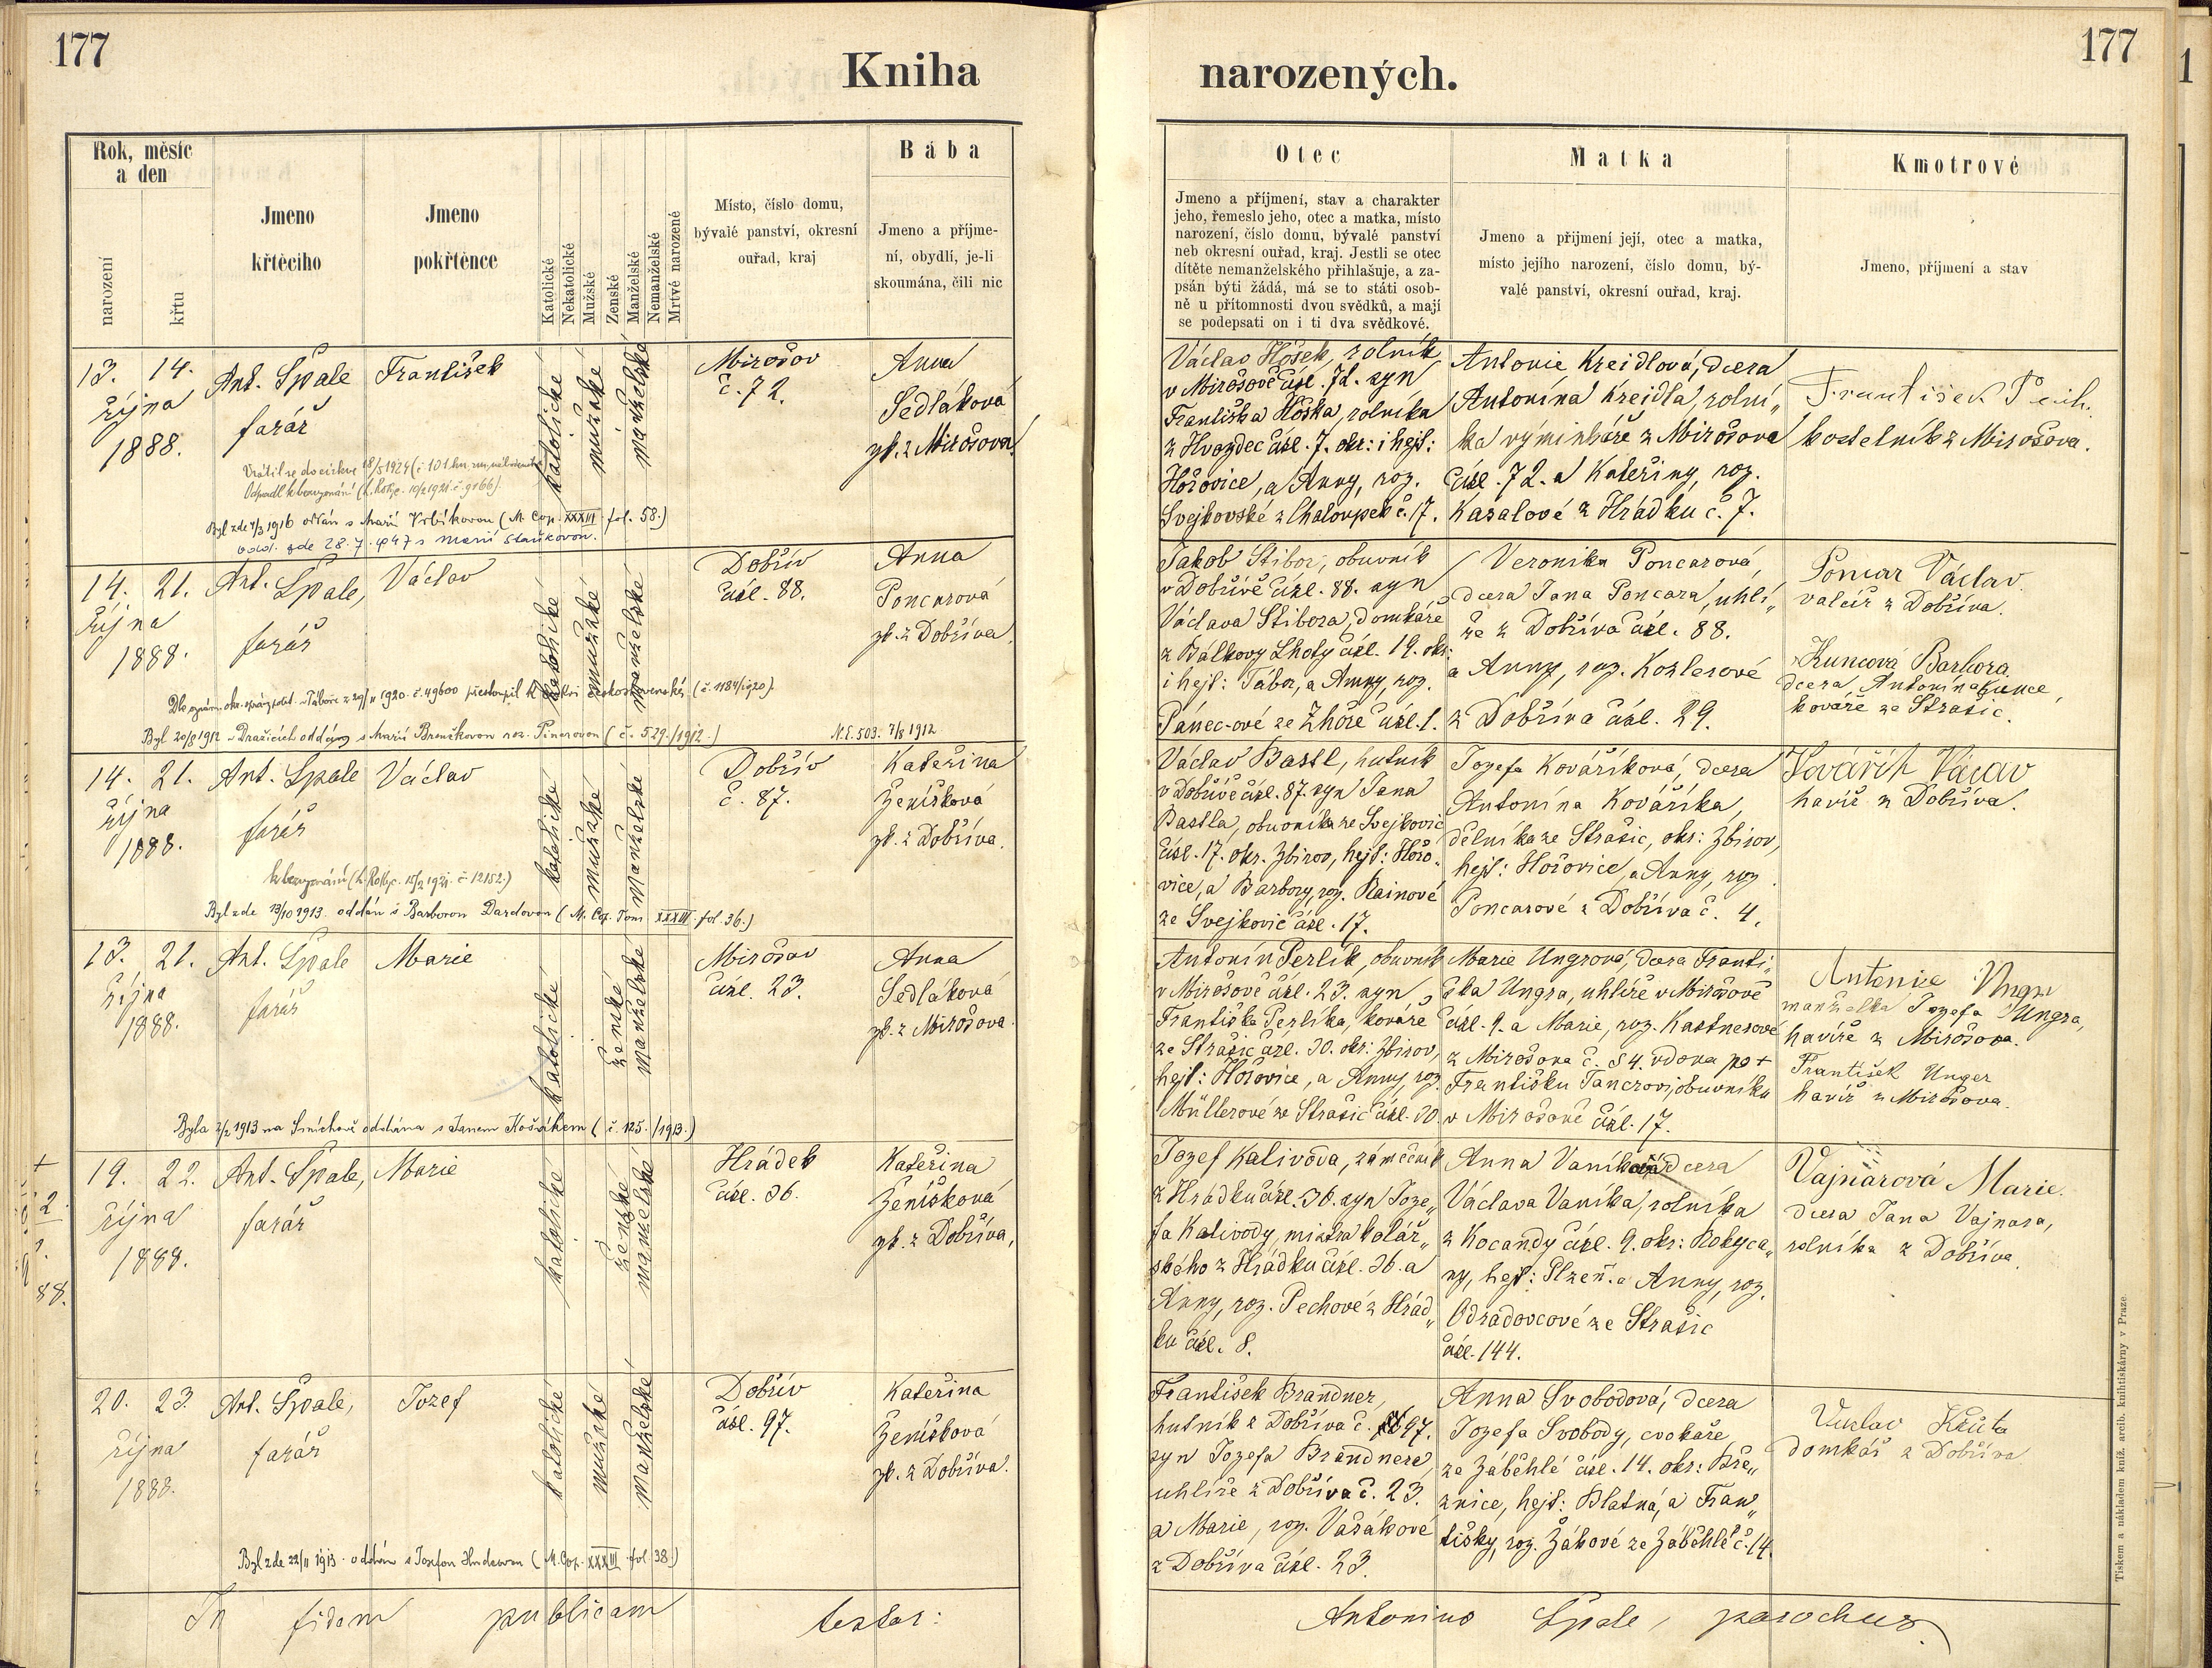 177
Kniha
narozených.
177
Rok, měsíc
a den
narození
křtu
Jmeno
křtěcího
Jmeno
pokřtěnce
Katolické
Nekatolické
Mužské
Ženské
Manželské
Nemanželské
Mrtvě narozené
Místo, číslo domu,
bývalé panství, okresní
ouřad, kraj
Bába
Jmeno a příjme-
ní, obydlí, je-li
skoumána, čili nic
Otec
Jmeno a příjmení, stav a charakter
jeho, řemeslo jeho, otec a matka, místo
narození, číslo domu, bývalé panství
neb okresní ouřad, kraj. Jestli se otec
dítěte nemanželského přihlašuje, a za-
psán býti žádá, má se to státi osob-
ně u přítomnosti dvou svědků, a mají
se podepsati on i ti dva svědkové.
Matka
Jmeno a přijmení její, otec a matka,
místo jejího narození, číslo domu, bý-
valé panství, okresní ouřad, kraj.
Kmotrové
Jmeno, příjmení a stav
13. 14.
října
1888.
Ant. Špale
farář
František
katolické
mužské
manželské
Mirošov
č. 72.
Anna
Sedláková
zk. z Mirošova
Vrátil se do církve 18/5 1924
Odpadl k bezvyznání
Byl zde 4/3 1916 oddán s Marií Vrbíkovou (M. Cop. XXXIII fol. 58.)
zde 28.7.1947 s Marií Staňkovou.
Václav Hošek, rolník
v Mirošově čísl. 72. syn
Františka Hoška, rolníka
z Hvozdec čísl. 7. okr: i hejt:
Hořovice, a Anny, roz.
Svejkovské z Chaloupek č. 17.
Antonie Kreidlová, dcera
Antonína Kreidla, rolní„
ka výminkáře z Mirošova
čísl. 72. a Kateřiny, roz.
Kasalové z Hrádku č. 7.
František
kostelník z Mirošova.
14. 21.
října
1888.
Ant. Špale,
farář
Václav
katolické
mužské
manželské
Dobřív
čísl. 88.
Anna
Poncarová
zk. z Dobříva.
Byl 20/8 1912 v Dražicích oddán s Marií
(č. 529./1912.)
N.E. 503. 7/8 1912
Jakob Stibor, obuvník
v Dobřívě čísl. 88. syn
Václava Stibora, domkáře
z Bálkovy Lhoty čísl. 19. okr:
i hejt: Tábor, a Anny, roz.
Pánec-ové ze Zhoře čísl. 1.
Veronika Poncarová,
dcera Jana Poncara, uhlí„
ře z Dobříva čísl. 88.
a Anny, roz. Kozlerové
z Dobříva čísl. 29.
Poncar Václav
valcíř z Dobříva.
Kuncová Barbora
dcera Antonína Kunce,
kováře ze Strašic.
14. 21.
října
1888.
Ant. Špale
farář
Václav
katolické
mužské
manželské
Dobřív
č. 87.
Kateřina
Ženíšková
zk. z Dobříva.
k bezvyznání
Byl zde 13/10 1913. oddán s Barborou Dardovou (M. Cop. Tom. XXXIII. fol 36.)
Václav Bastl, hutník
v Dobřívě čísl. 87. syn Jana
Bastla, obuvníka ze Svejkovic
čísl. 17. okr. Zbirov, hejt: Hořo-
vice, a Barbory, roz. Rainové
ze Svejkovic čísl. 17.
Jozefa Kováříková, dcera
Antonína Kováříka,
dělníka ze Strašic, okr: Zbirov,
hejt: Hořovice, a Anny, roz.
Poncarové z Dobříva č. 4.
Kovářík Václav
havíř z Dobříva.
13. 21.
října
1888.
Ant. Špale
farář
Marie
katolické
ženské
manželské
Mirošov
čísl. 23.
Anna
Sedláková
zk. z Mirošova.
Byla 2/2 1913 na Smíchově oddána s Janem Košťákem (č. 125./1913.)
Antonín Perlík, obuvník
v Mirošově čísl. 23. syn
Františka Perlíka, kováře
ze Strašic čísl. 30. okr: Zbirov,
hejt: Hořovice, a Anny, roz.
Müllerové ze Strašic čísl. 30.
Marie Ungrová, dcera Franti„
ška Ungra, uhlíře v Mirošově
čísl. 9. a Marie, roz. Kastnerové
z Mirošova č. 84. vdova po +
Františku Tancrovi, obuvníku
v Mirošově čísl. 17.
Antonie Ungr
manželka Jozefa Ungra,
havíře z Mirošova.
František Unger
havíř z Mirošova.
19. 22.
října
1888.
Ant. Špale,
farář
Marie
katolické
ženské
manželské
Hrádek
čísl. 36.
Kateřina
Ženíšková
zk. z Dobříva,
Jozef Kalivoda, zámečník
z Hrádku čísl. 36. syn Joze„
fa Kalivody, mistra kolář„
ského z Hrádku čísl. 36. a
Anny, roz. Pechové z Hrád„
ku čísl. 8.
Anna Vaníková dcera
Václava Vaníka, rolníka
z Kocandy čísl. 9. okr: Rokyca„
ny, hejt: Plzeň. a Anny, roz.
Odradovcové ze Strašic
čísl. 144.
Vajnarová Marie.
dcera Jana Vajnara,
rolníka z Dobříva.
20. 23.
října
1888.
Ant. Špale,
farář
Jozef
katolické
mužské
manželské
Dobřív
čísl. 97.
Kateřina
Ženíšková
zk. z Dobříva.
Byl zde 22/11 1913. oddán s (M. Cop. XXXIII. fol 38.)
František Brandner,
hutník z Dobříva č. 97.
syn Jozefa Brandnera
uhlíře z Dobříva č. 23.
a Marie, roz. Vašákové
z Dobříva čísl. 23.
Anna Svobodová, dcera
Jozefa Svobody, cvokaře
ze Záběhlé čísl. 14. okr: Bře„
znice, hejt: Blatná, a Fran„
tišky, roz. Žákové ze Záběhlé č. 14.
Václav
domkář z Dobříva
In fidem publicam testor:
Antonius Špale, parochus.
Tiskem a nákladem kníž. arcib. knihtiskárny v Praze.